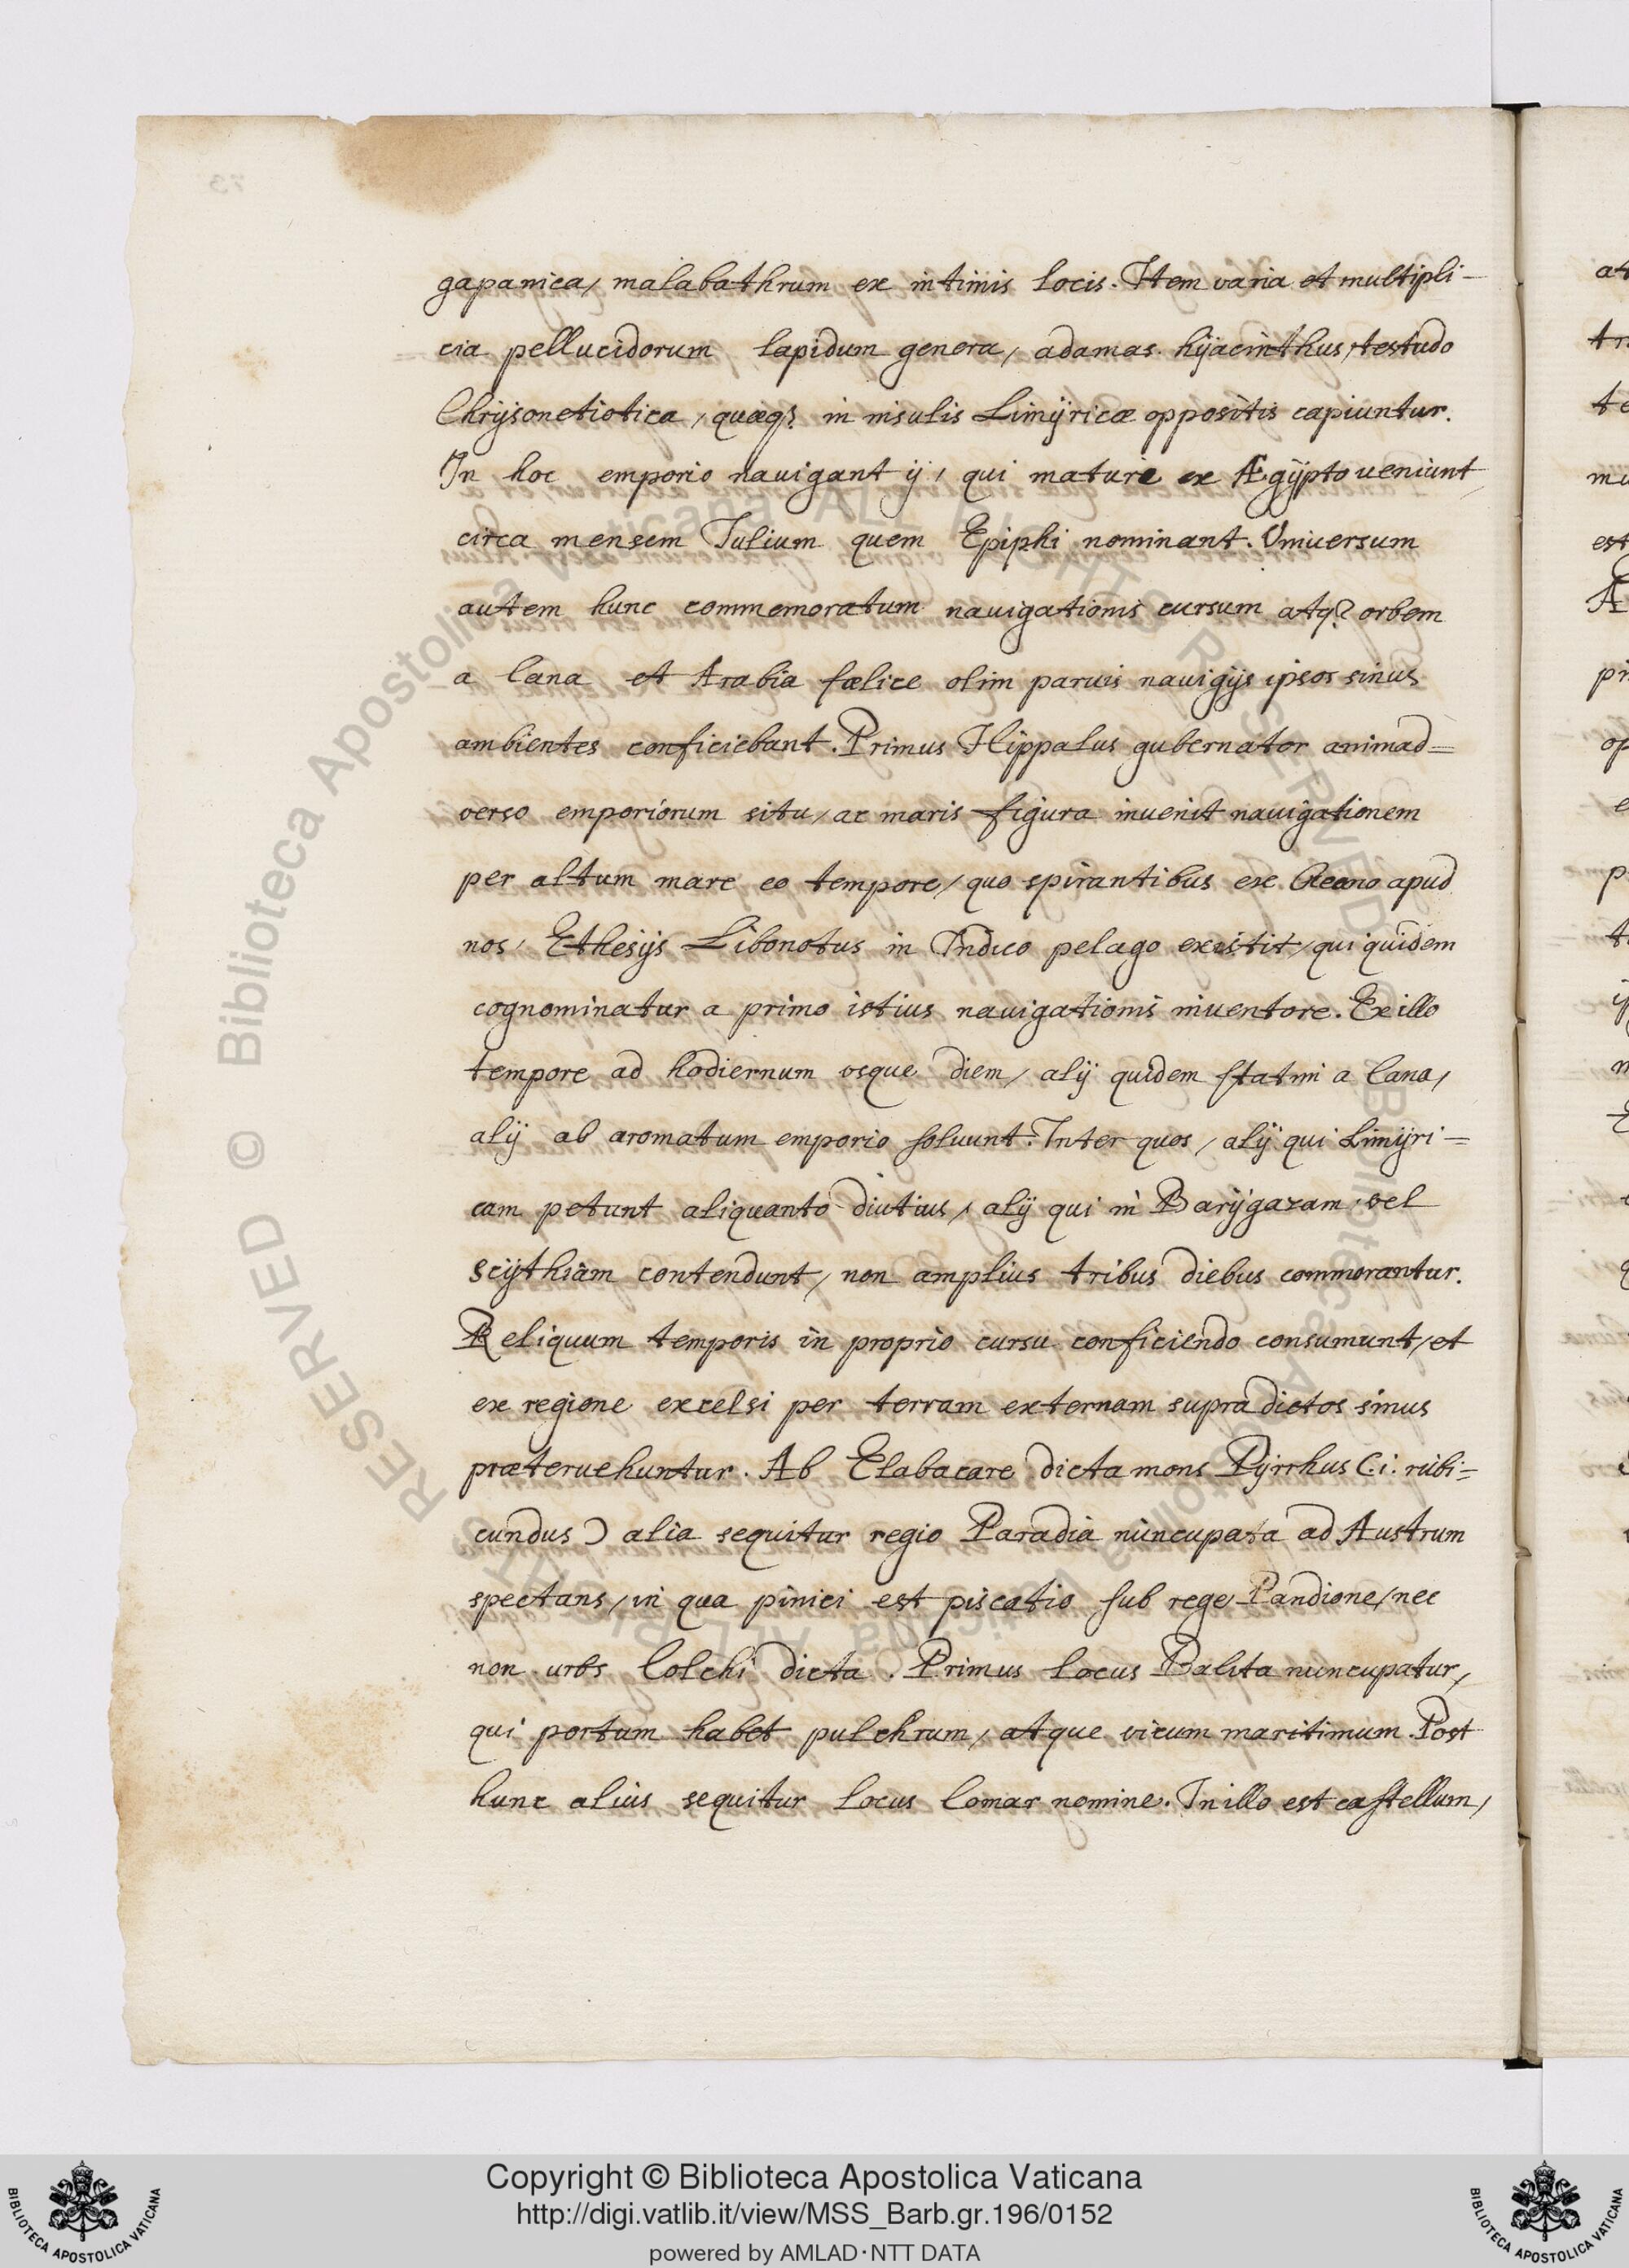 gapanica, malabathrum ex intimis locis. Item varia et multipli-
cia pellucidorum lapidum genera, adamas. hÿacinthus, testudo
Chrÿsonetiotica, quæq₃ in insulis Limÿricæ oppositis capiuntur.
In hoc emporio nauigant ij, qui mature ex Ægÿpto ueniunt
circa mensem Iulium quem Epiphi nominant. Vniuersum
autem hunc commemoratum nauigationis cursum atq₃ orbem
a Cana et Arabia fælice olim paruis nauigijs ipsos sinus
ambientes conficiebant. Primus Hippalus gubernator animad=
verso emporiorum situ, ac maris figura inuenit nauigationem
per altum mare eo tempore, quo spirantibus ex Oceano apud
nos, Ethesijs Libonotus in Indico pelago existit, qui quidem
cognominatur a primo istius nauigationis inuentore. Ex illo
tempore ad hodiernum vsque diem, alij quidem statim a Cana,
alij ab aromatum emporio soluunt. Inter quos, alij qui Limÿri=
cam petunt aliquanto diutius, alij qui in Barÿgazam vel
Scÿthiam contendunt, non amplius tribus diebus commorantur.
Reliquum temporis in proprio cursu conficiendo consumunt, et
ex regione excelsi per terram externam supradictos sinus
præteruehuntur. Ab Elabacare dicta mons Pÿrrhus (.i. rubi=
cundus) alia sequitur regio Paradia nuncupata ad Austrum
spectans, in qua pinici est piscatio sub rege Pandione, nec
non urbs Colchi dicta. Primus locus Balita nuncupatur,
qui portum habet pulchrum, atque vicum maritimum. Post
hunc alius sequitur locus Comar nomine. In illo est castellum,
73
at
te
est
A
© Biblioteca Apostolica Vaticana ALL RIGHTS RESERVED
Copyright © Biblioteca Apostolica Vaticana
http://digi.vatlib.it/view/MSS_Barb.gr.196/0152
powered by AMLAD·NTT DATA
BIBLIOTECA APOSTOLICA VATICANA
BIBLIOTECA APOSTOLICA VATICANA